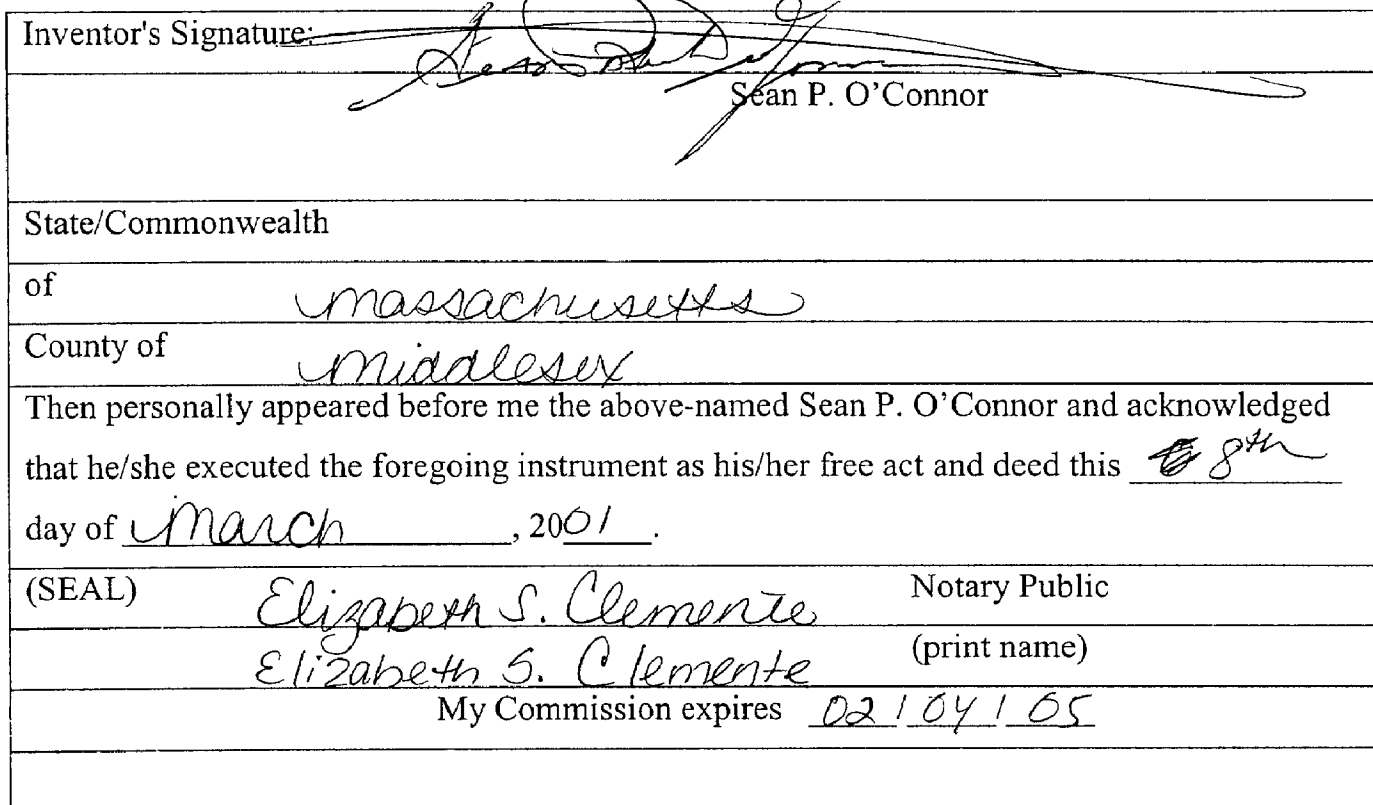 Inventor's Signature:
Sean P. O'Connor
State/Commonwealth
of Massachusetts
County of Middlesex
Then personally appeared before me the above-named Sean P. O'Connor and acknowledged
that he/she executed the foregoing instrument as his/her free act and deed this 8th
day of March, 2001.
(SEAL) Elizabeth S. Clemente Notary Public
Elizabeth S. Clemente (print name)
My Commission expires 02/04/05